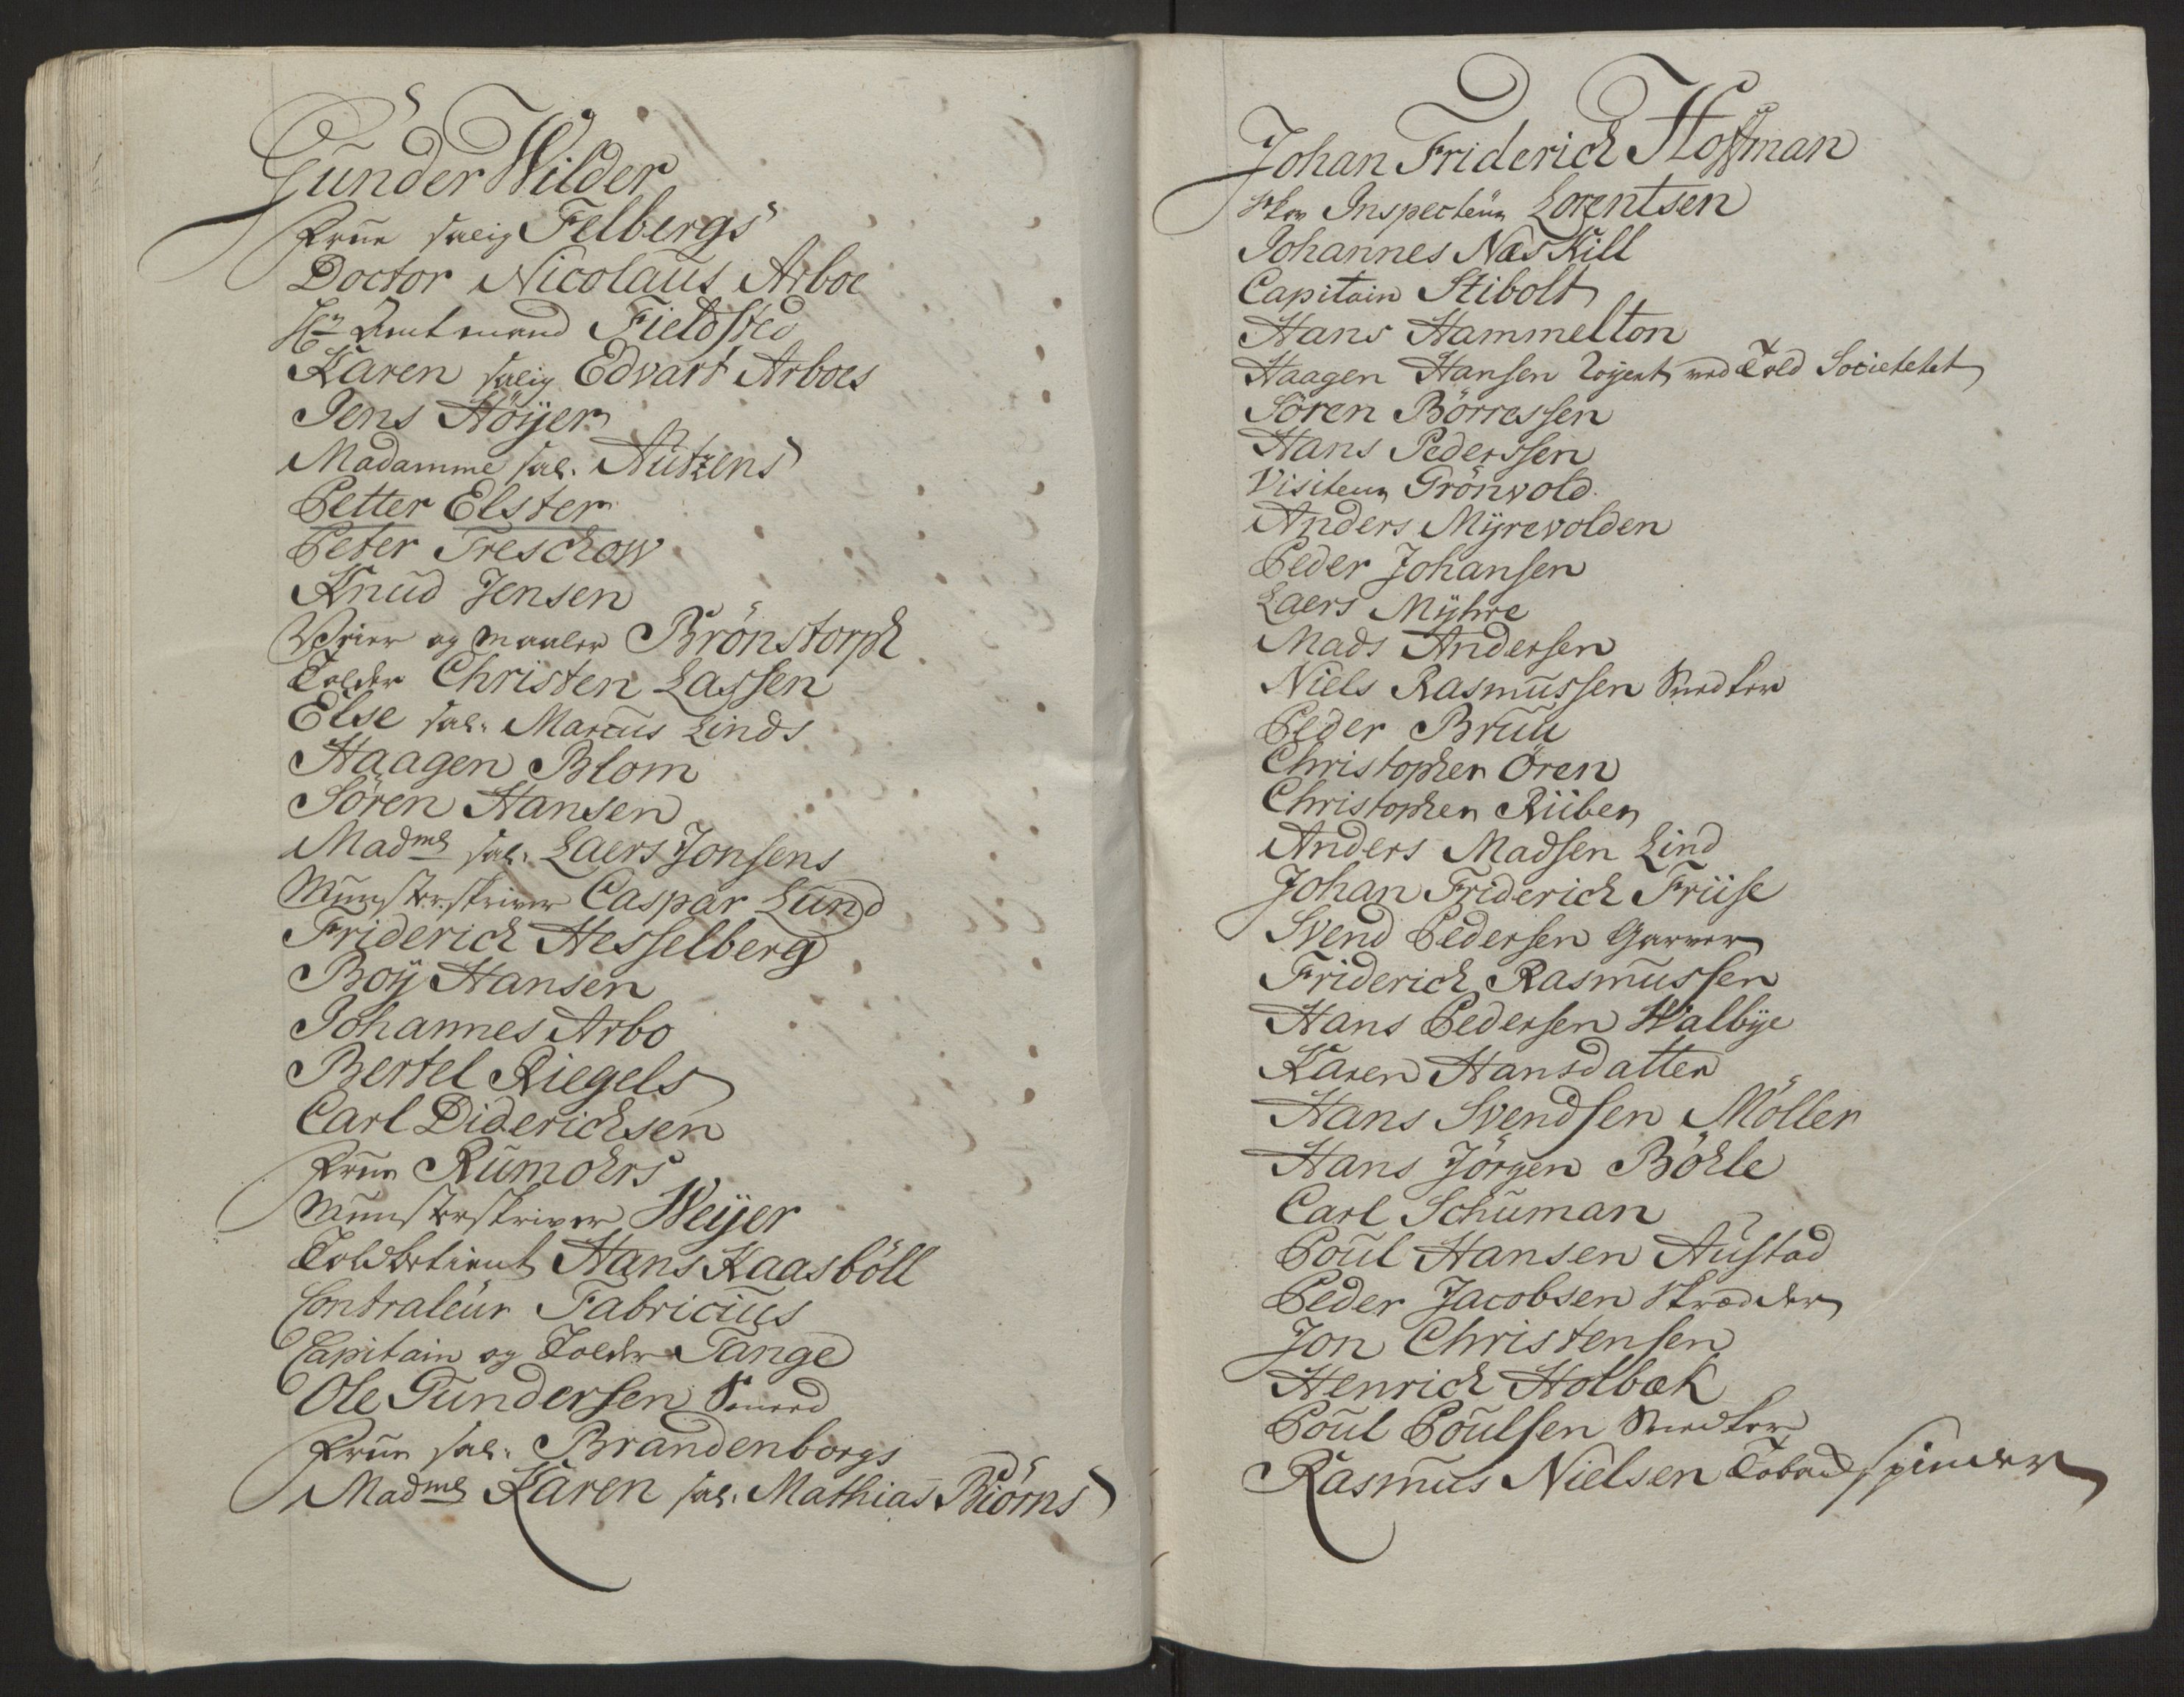 Gunder Wilder
Frue salig Felbergs
Doctor Nicolaus Arboe
Hr Amtmand Fieldsted
Karen salig Edvart Arboes
Jens Höyer
Madamme sal. Autzens
Petter Elster
Peter Treschow
Knud Jensen
Veier og Maaler Brönstorph
Tolder Christen Lassen
Else sal. Marcus Linds
Haagen Blom
Sören Hansen
Madme sal. Laers Jonsens
Mynsterskriver Caspar Lund
Friderich Hesselberg
Boy Hansen
Johannes Arbo
Bertel Riegels
Carl Diderichsen
Frue Rumohrs
Mynsterskriver Weyer
Toldbetient Hans Kaasböll
Contraleur Fabricius
Capitain og Tolder Tange
Ole Gundersen Smed
Frue sal. Brandenborgs
Madme Karen sal. Mathias Biörns
Johan Friderich Hofman
Inspecteur Lorentsen
Johannes Næskill
Capitain Stibolt
Hans Hammelton
Haagen Hansen ved Told Societetet
Sören Börressen
Hans Pederssen
Visiteur Grönvold
Anders Myrevolden
Peder Johansen
Laers Myhre
Mads Andersen
Niels Rasmussen Snedker
Peder Bruu
Christopher Ören
Christopher Riiber
Anders Madsen Lind
Johan Friderich Friise
Svend Pedersen Garver
Friderich Rasmussen
Hans Pedersen Walbye
Karen Hansdatter
Hans Svendsen Möller
Hans Jörgen Böhle
Carl Schuman
Poul Hansen Austad
Peder Jacobsen Skrædder
Jon Christensen
Henrich Holbæk
Poul Poulsen Snedker
Rasmus Nielsen Tobachspinder